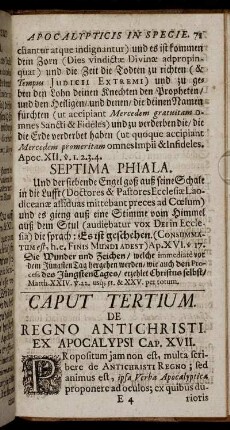 APOCALYPTICIS IN SPECIE. 71
cliantur atque indignantur) und es ist kommen
dein Zorn (Dies vindictæ Divinæ adpropin-
quat) und die Zeit die Todten zu richten (&
Tempus JUDICII EXTREMI) und zu ge-
ben den Lohn deinen Knechten den Propheten/
und den Heiligen/ und denen/ die deinen Namen
fürchten (ut accipiant Mercedem gratuitam O-
mnes Sancti & Fideles) und zu verderben die/ die
die Erde verderbet haben (ut quoque accipiant
Mercedem promeritam omnes Impii & Infideles.
Apoc. XII, v. 1. 2. 3. 4.
SEPTIMA PHIALA.
Und der siebende Engel goß auß seine Schale
in die Lufft (Doctores & Pastores Ecclesiæ Lao-
diceanæ assiduas mittebant preces ad Cœlum)
und es gieng auß eine Stimme vom Himmel
auß dem Stul (audiebatur vox DEI in Eccle-
sia) die sprach: Es ist geschehen. (CONSUM-
TUM est, h.e. FINIS MUNDI ADEST) Ap. XVI. v. 17.
Die Wunder und Zeichen/ welche immediatè vor
dem Jüngsten Tag hergehen werden/ wie auch den Pro-
ceß des Jüngsten Tages/ erzehlet Christus selbst/
Matth. XXIV. v. 22. usq; ff. & XXV. per totum.
CAPUT TERTIUM.
DE
REGNO ANTICHRISTI.
EX APOCALYPSI CAP. XVII.
PRopositum jam non est, multa scri-
bere de ANTICHRISTI REGNO; sed
animus est, ipsa Verba Apocalyptica
proponere ad oculos; ex quibus du-
E 4 riotis